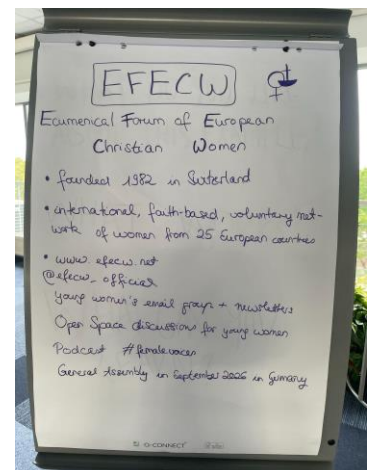 EFECW
Ecumenical Forum of European
Christian Women
• founded 1982 in Switzerland
• international, faith-based, voluntary net-
work of women from 25 European countries
• www.efecw.net
@efecw_official
young women's email group + newsletters
Open Space discussions for young women
Podcast #femalevoices
General Assembly in September 2026 in Germany
G-CONNECT